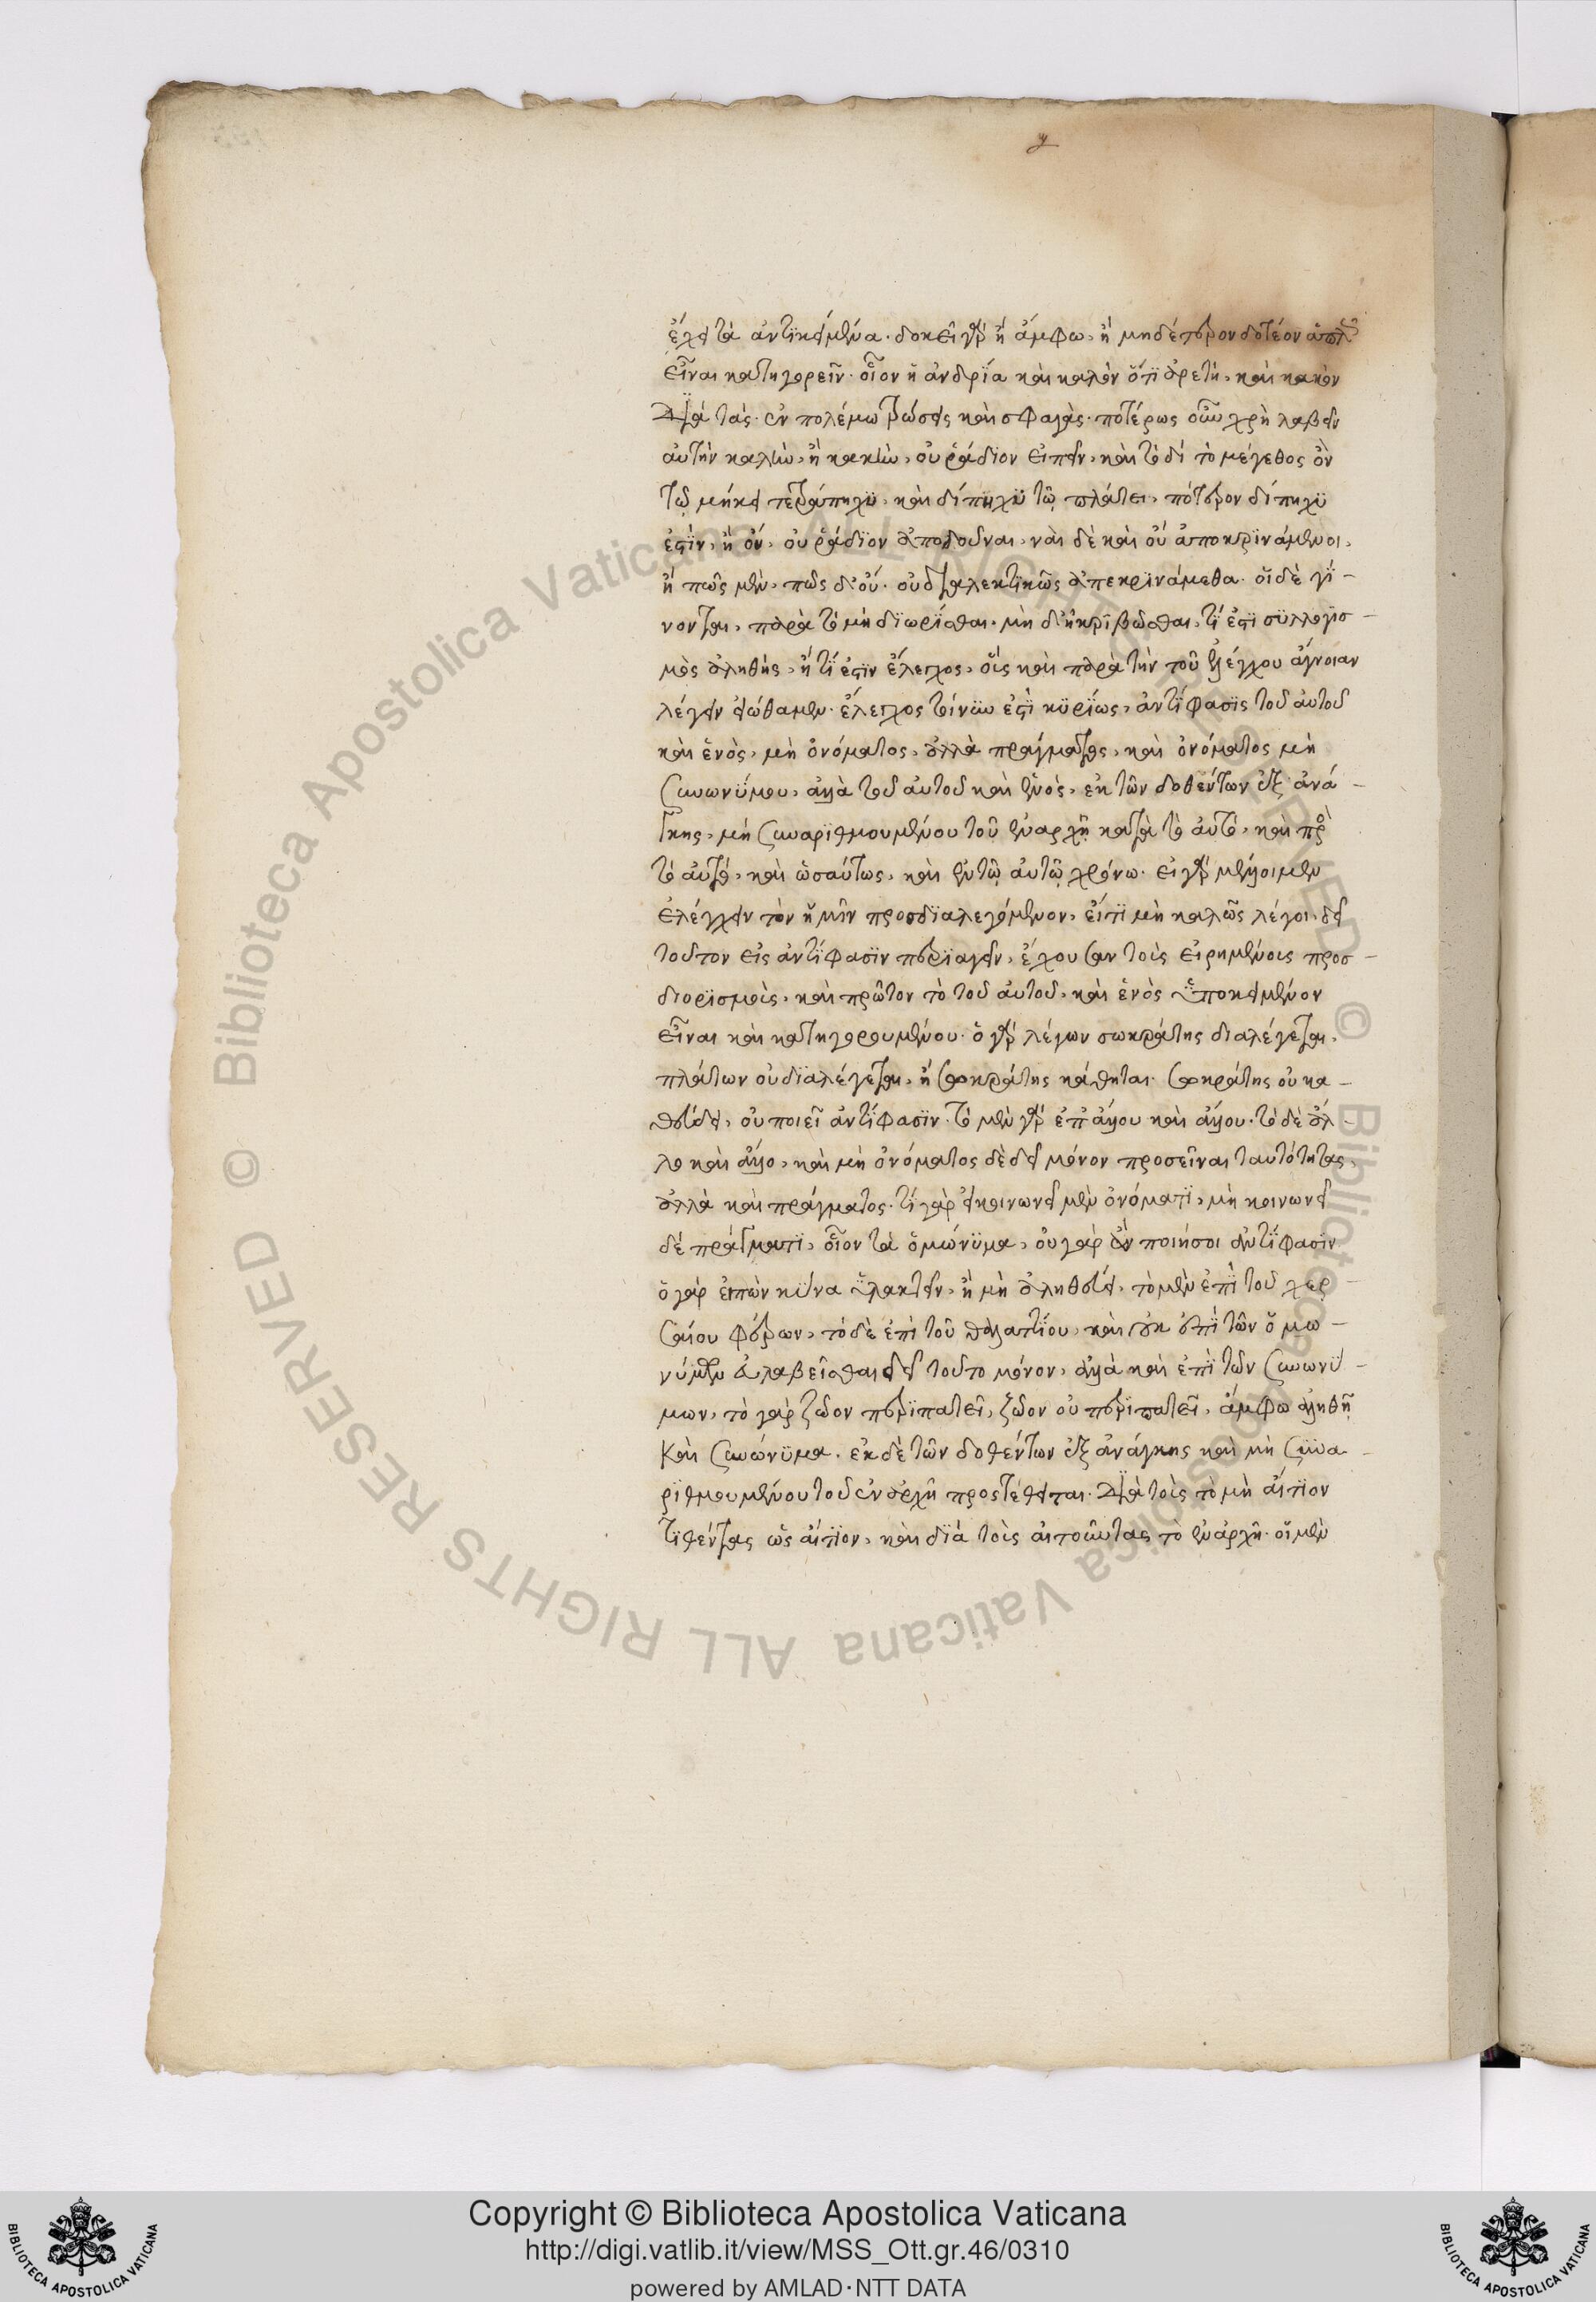 ἔχει τὰ ἀντικείμενα. δοκεῖ γὰρ ἢ ἄμφω, ἢ μηδέτερον δοτέον ἁπλῶς
εἶναι κατηγορεῖν. οἷον ἡ ἀνδρία καὶ καλὸν ὅτι ἀρετὴ, καὶ κακὸν
διὰ τὰς ἐν πολέμω τρώσεις καὶ σφαγὰς. ποτέρως οὖν χρὴ λαβεῖν
αὐτὴν καλὴν, ἢ κακὴν, οὐ ῥάδιον εἰπεῖν, καὶ τὸ δὶ τὸ μέγεθος ὂν
τῷ μήκει τετράπηχυ, καὶ δίπηχυ τῶ πλάτει, πότερον δίπηχυ
ἐστὶν, ἢ οὔ, οὐ ῥάδιον ἀποδοῦναι, ναὶ δὲ καὶ οὐ ἀποκρινάμενοι,
ἢ πῶς μὲν, πῶς δ' οὔ. οὐ διαλεκτικῶς ἀπεκρινάμεθα. οἱ δὲ γί-
νονται, παρὰ τὸ μὴ διωρίσθαι, μὴ διηκριβῶσθαι, τί ἐστι συλλογισ-
μὸς ἀληθὴς, ἢ τί ἐστιν ἔλεγχος, οἷς καὶ παρὰ τὴν τοῦ ἐλέγχου ἄγνοιαν
λέγειν εἰώθαμεν. ἔλεγχος τοίνυν ἐστὶ κυρίως, ἀντίφασις τοῦ αὐτοῦ
καὶ ἑνὸς, μὴ ὀνόματος, ἀλλὰ πράγματος, καὶ ὀνόματος μὴ
συνωνύμου, ἀλλὰ τοῦ αὐτοῦ καὶ ἑνὸς, ἐκ τῶν δοθέντων ἐξ ἀνά-
γκης, μὴ συναριθμουμένου τοῦ ἐν ἀρχῆ κατὰ τὸ αὐτὸ, καὶ πρὸς
τὸ αὐτὸ, καὶ ὡσαύτως, καὶ ἐν τῶ αὐτῶ χρόνω. εἰ γὰρ μέλλοιμεν
ἐλέγχειν τὸν ἡμῖν προσδιαλεγόμενον, εἴ τι μὴ καλῶς λέγοι, δεῖ
τοῦτον εἰς ἀντίφασιν περιαγεῖν, ἔχουσαν τοῖς εἰρημένοις προσ-
διορισμοῖς, καὶ πρῶτον τὸ τοῦ αὐτοῦ, καὶ ἑνὸς ὑποκείμενον
εἶναι καὶ κατηγορουμένου. ὁ γὰρ λέγων σωκράτης διαλέγεται,
πλάτων οὐ διαλέγεται, ἢ σωκράτης κάθηται. σωκράτης οὐ κα-
θεύδει, οὐ ποιεῖ ἀντίφασιν. τὸ μὲν γὰρ ἐπ' ἄλλου καὶ ἄλλου. τὸ δὲ ἄλ-
λο καὶ ἄλλο, καὶ μὴ ὀνόματος δὲ δεῖ μόνον προσεῖναι ταυτότητας,
ἀλλὰ καὶ πράγματος. τί γὰρ εἰ κοινωνεῖ μὲν ὀνόματι, μὴ κοινωνεῖ
δὲ πράγματι, οἷον τὰ ὁμώνυμα, οὐ γὰρ ἂν ποιήσοι ἀντίφασιν
ὁ γὰρ εἰπὼν κύνα ὑλακτεῖν, ἢ μὴ ἀληθεύει, τὸ μὲν ἐπὶ τοῦ χερ-
σαίου φέρων, τὸ δὲ ἐπὶ τοῦ θαλαττίου, καὶ οὐκ ἐπὶ τῶν ὁμω-
νύμων εὐλαβεῖσθαι δεῖ τοῦτο μόνον, ἀλλὰ καὶ ἐπὶ τῶν συνωνύ-
μων, τὸ γὰρ ζῶον περιπατεῖ, ζῶον οὐ περιπατεῖ, ἄμφω ἀληθῆ
καὶ συνώνυμα. ἐκ δὲ τῶν δοθέντων ἐξ ἀνάγκης καὶ μὴ συνα-
ριθμουμένου τοῦ ἐν ἀρχῆ προστέθειται. διὰ τοὶς τὸ μὴ αἴτιον
τιθέντας ὡς αἴτιον, καὶ διὰ τοὶς αἰτοῦντας τὸ ἐν ἀρχῆ. οἱ μὲν
Copyright © Biblioteca Apostolica Vaticana
http://digi.vatlib.it/view/MSS_Ott.gr.46/0310
powered by AMLAD·NTT DATA